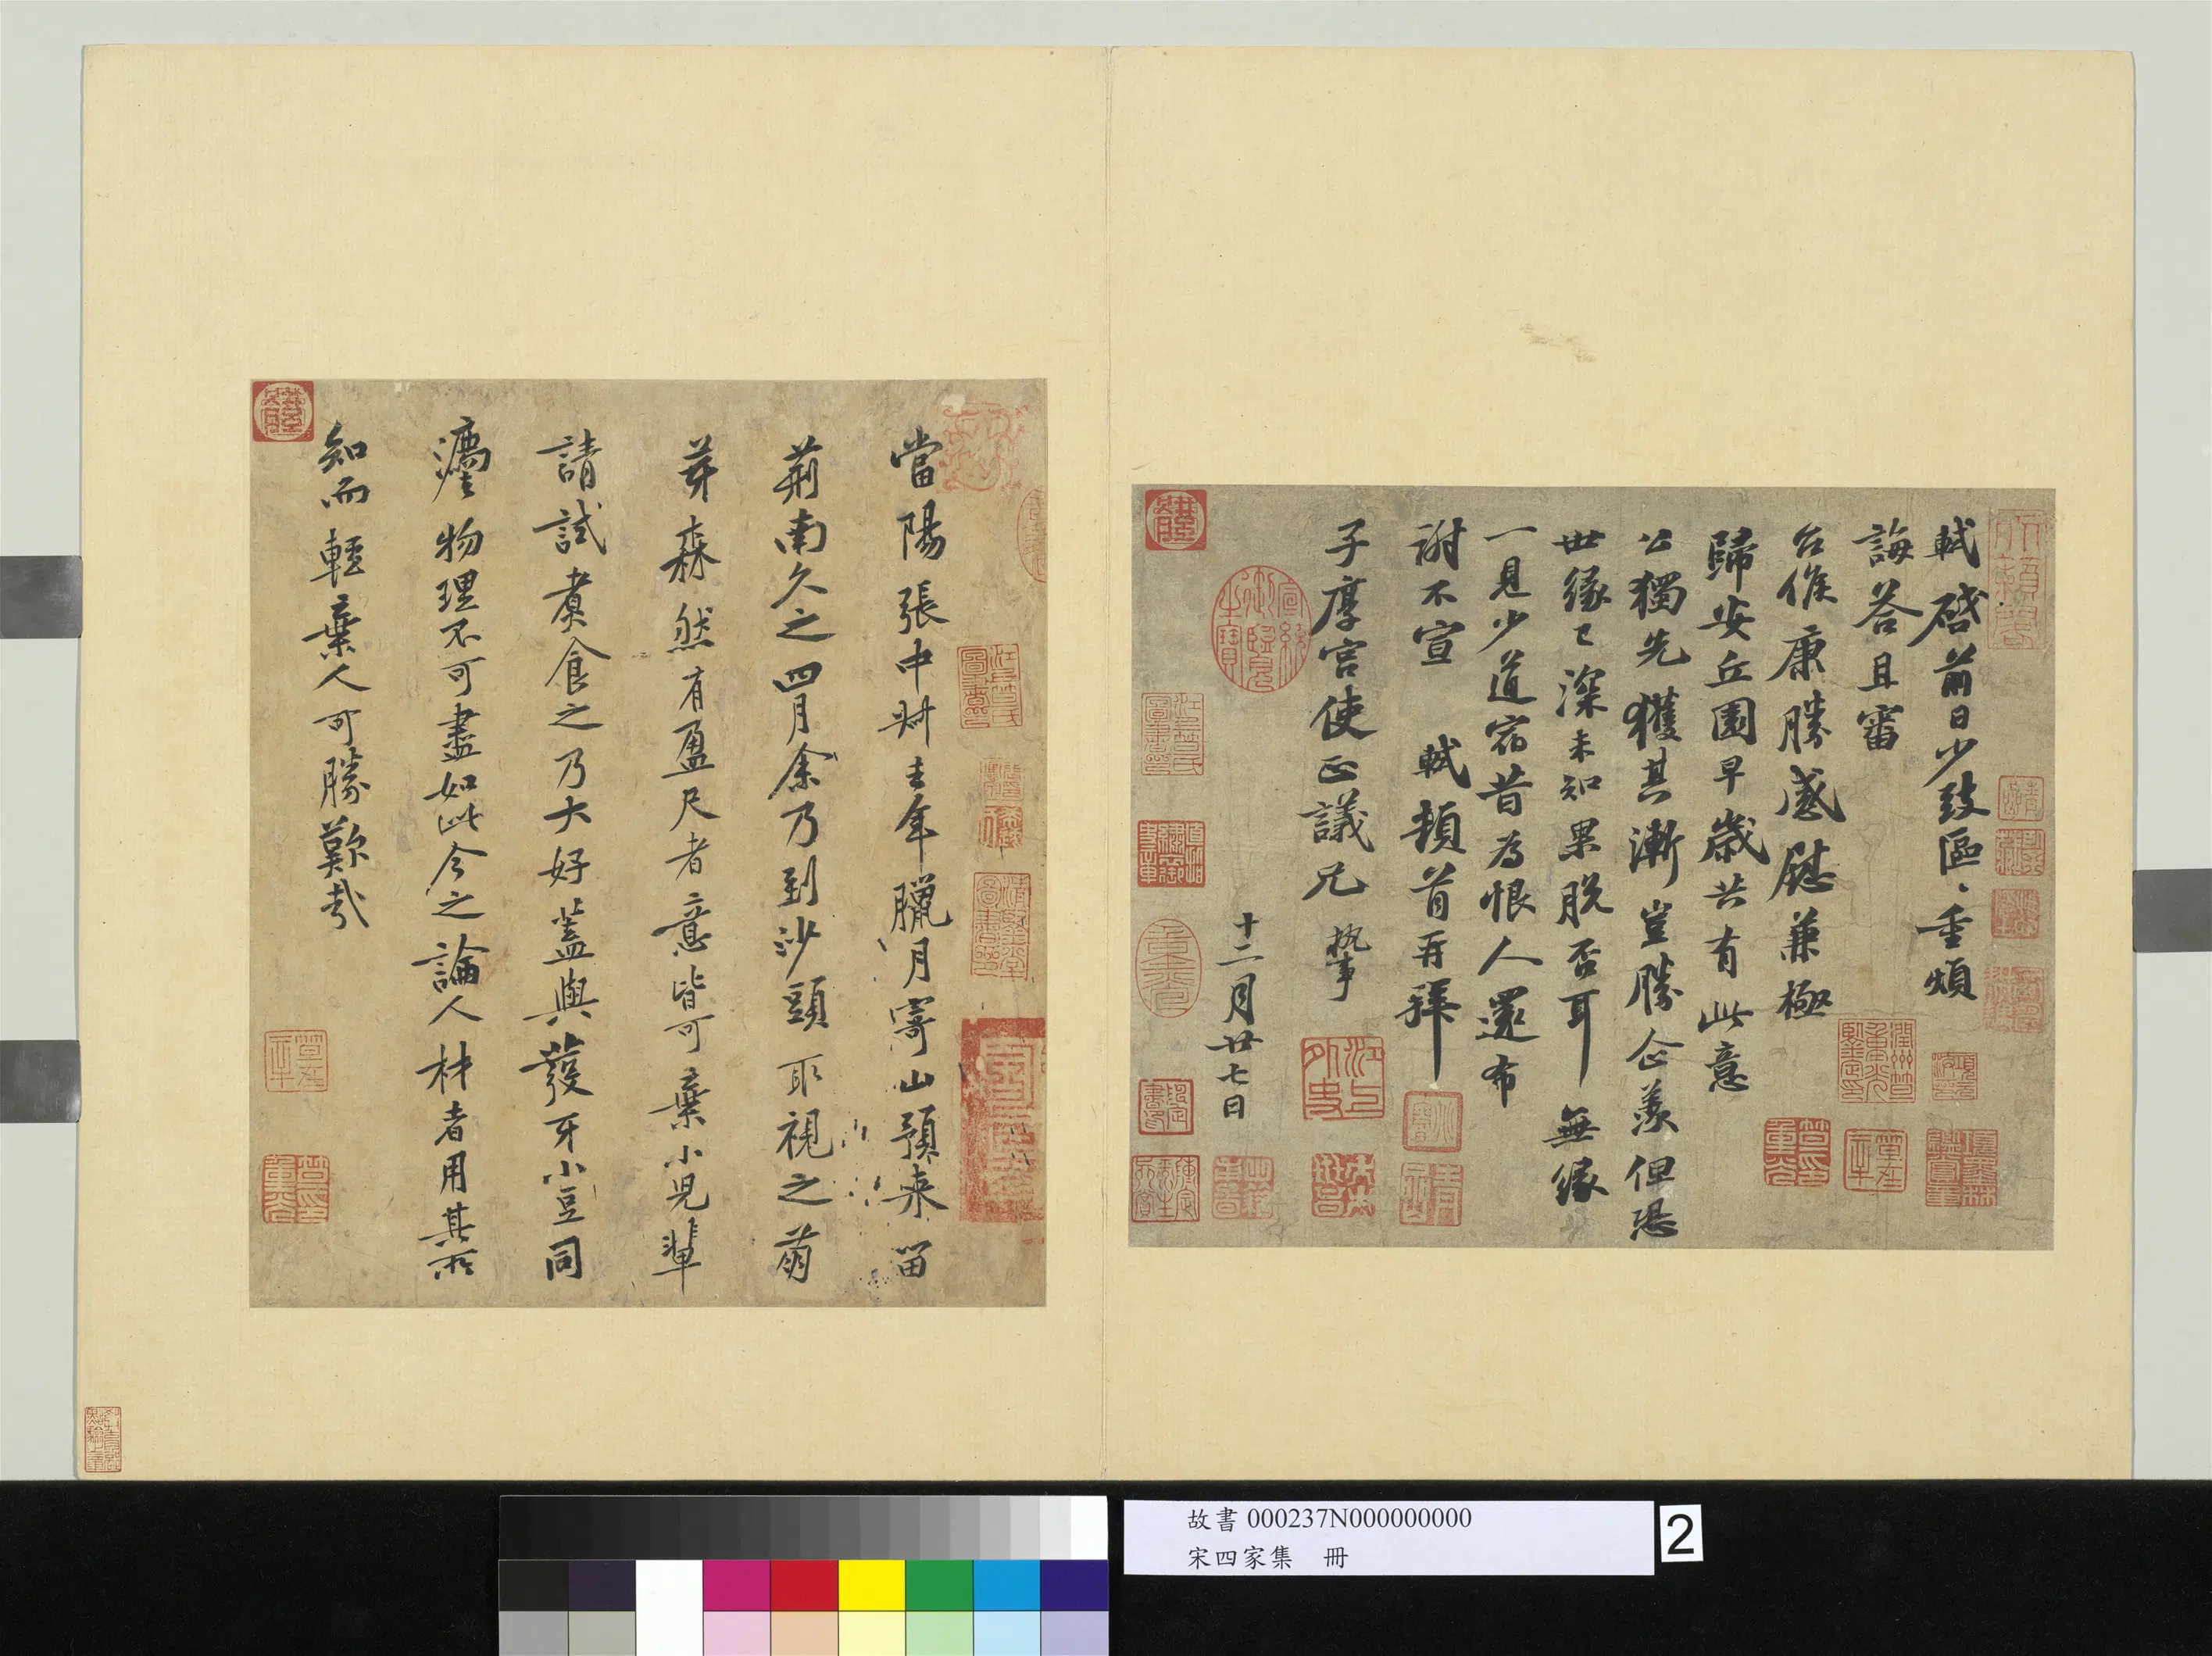 軾啓前日少致區〻重煩
誨荅且審
台候康勝感慰兼極
歸安丘園早歳共有此意
公獨先獲其漸豈勝企羨但恐
世緣已深未知果脫否耳無緣
一見少道宿昔為恨人還布
謝不宣 軾頓首再拜
子厚宮使正議兄 執事
十二月廿七日
當陽張中叔去年臘月寄山預来留
荊南久之四月余乃到沙頭取視之萌
芽森然有盈尺者意皆可棄小兒輩
請試煑食之乃大好蓋與發牙小豆同
灋物理不可盡如此今之論人材者用其所
知而輕棄人可勝歎哉
故書 000237N000000000
宋四家集 冊
2